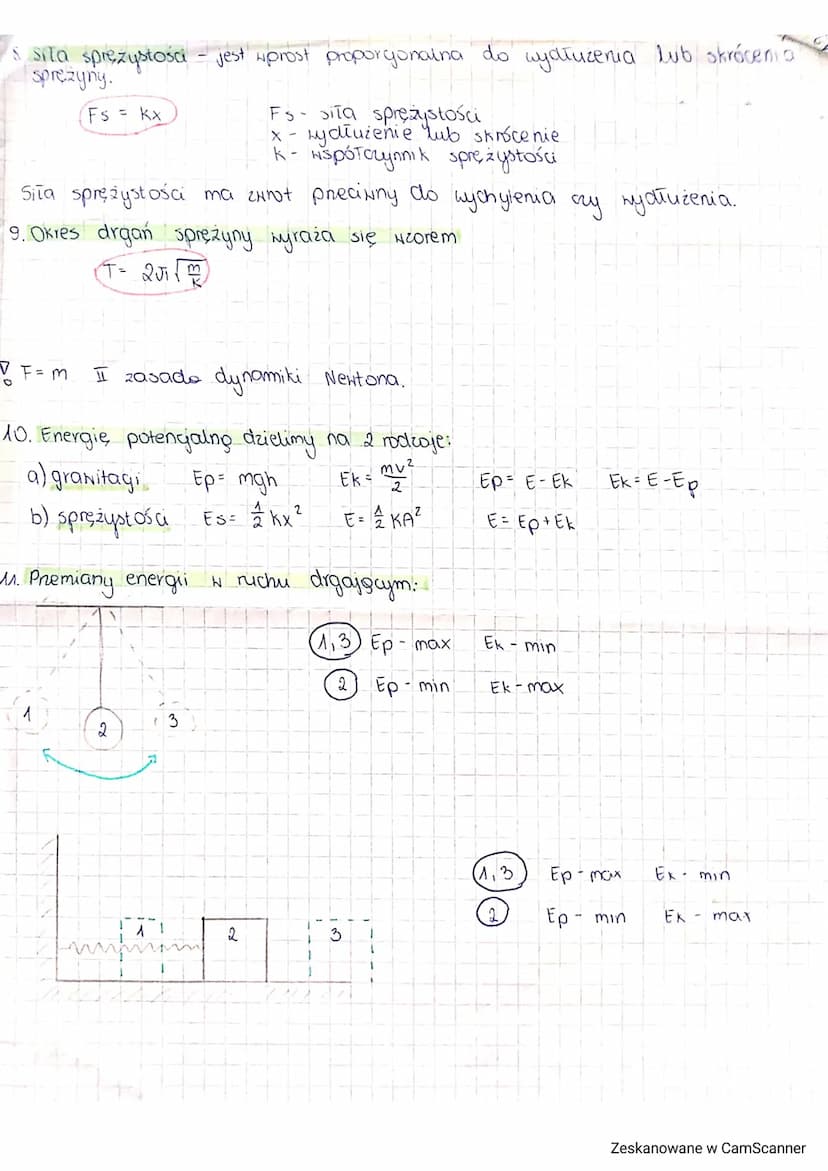 8. Siła sprężystości - jest wprost proporcjonalna do wydłużenia lub skrócenia
sprężyny.
Fs = kx
Fs - siła sprężystości
x - wydłużenie lub skrócenie
k - współczynnik sprężystości
Siła sprężystości ma zwrot przeciwny do wychylenia czy wydłużenia.
9. Okres drgań sprężyny wyraża się wzorem
T = 2π√(m/k)
! F = m II zasada dynamiki Newtona.
10. Energię potencjalną dzielimy na 2 rodzaje:
a) grawitacji Ep = mgh Ek = mv²/2 Ep = E - Ek Ek = E - Ep
b) sprężystości Es = 1/2 kx² E = 1/2 KA² E = Ep + Ek
11. Przemiany energii w ruchu drgającym:
1,3 Ep - max Ek - min
2 Ep - min Ek - max
1 2 3
1,3 Ep - max Ek - min
2 Ep - min Ek - max
1 2 3
Zeskanowane w CamScanner